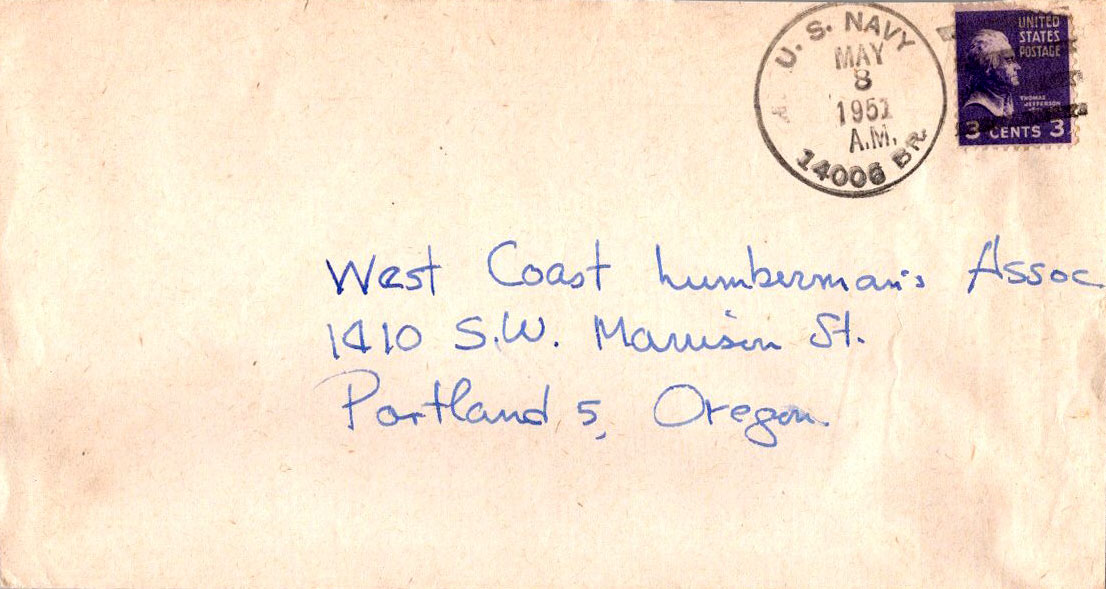 U. S. NAVY
MAY
8
1951
A.M.
14006 BR.
UNITED
STATES
POSTAGE
THOMAS
JEFFERSON
3 CENTS 3
West Coast Lumberman's Assoc
1410 S.W. Morrison St.
Portland 5, Oregon